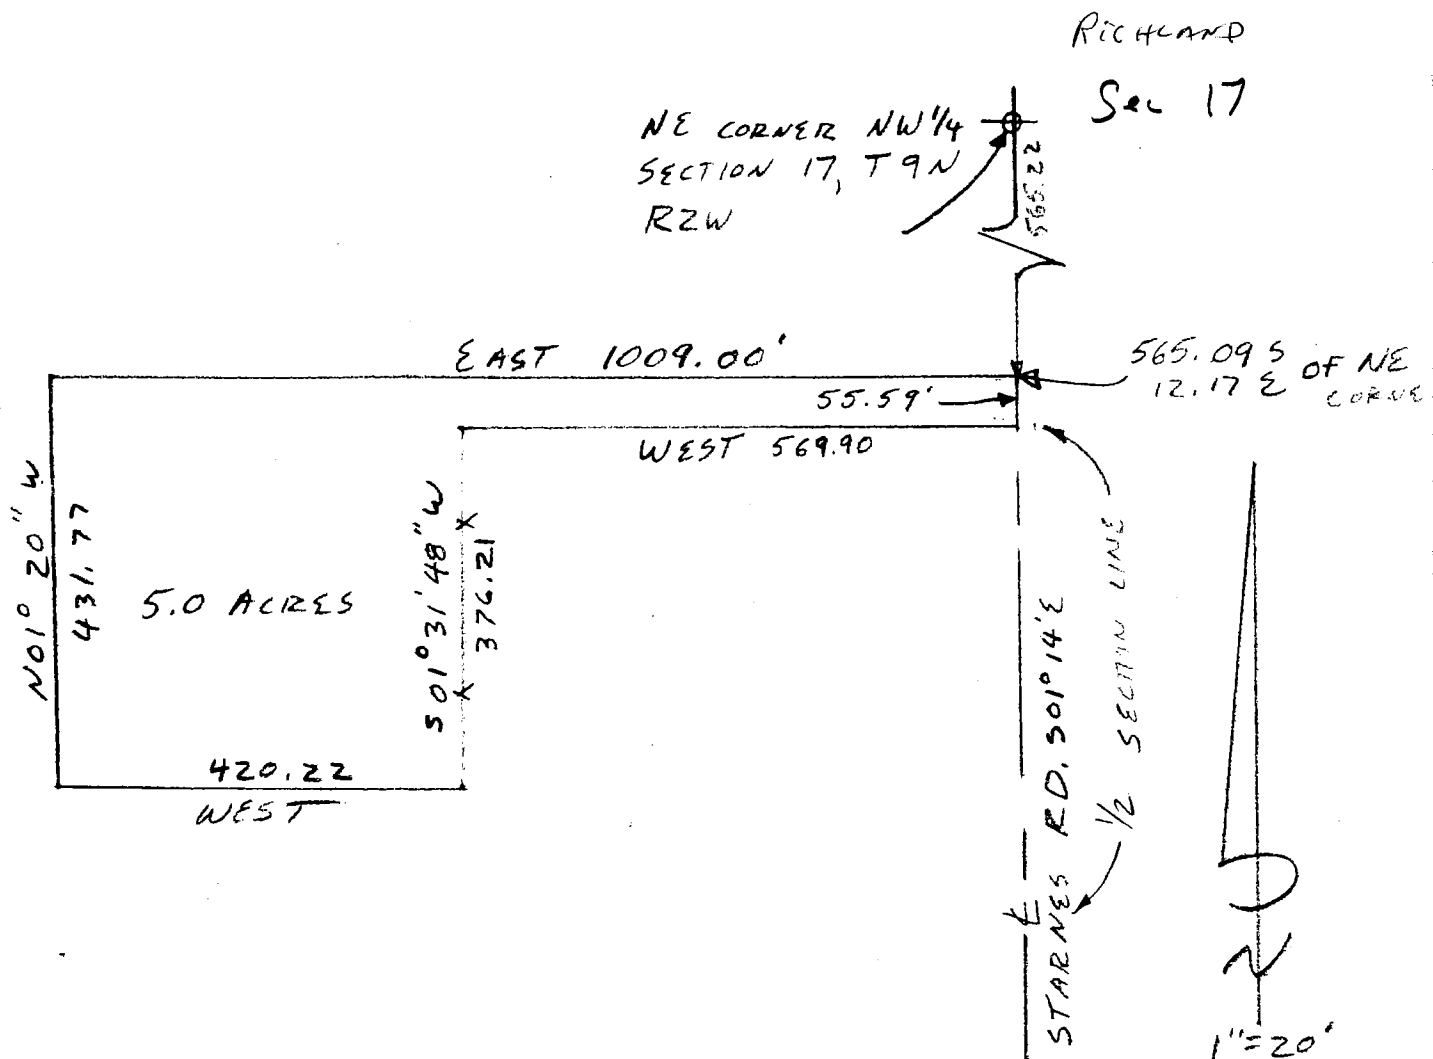 RICHLAND
Sec 17
NE CORNER NW 1/4
SECTION 17, T9N
R2W
565.22
EAST 1009.00'
565.09 S OF NE
12.17 E CORNE
55.59'
WEST 569.90
N01° 20" W
431.77
5.0 ACRES
S01°31'48" W
376.21
420.22
WEST
STARNES RD. S01°14'E
1/2 SECTION LINE
N
1"=20'